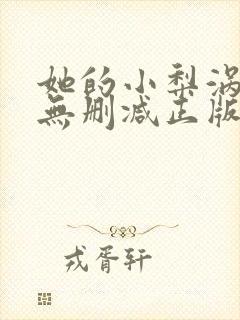 她的小梨涡
無删减正版
戎胥轩